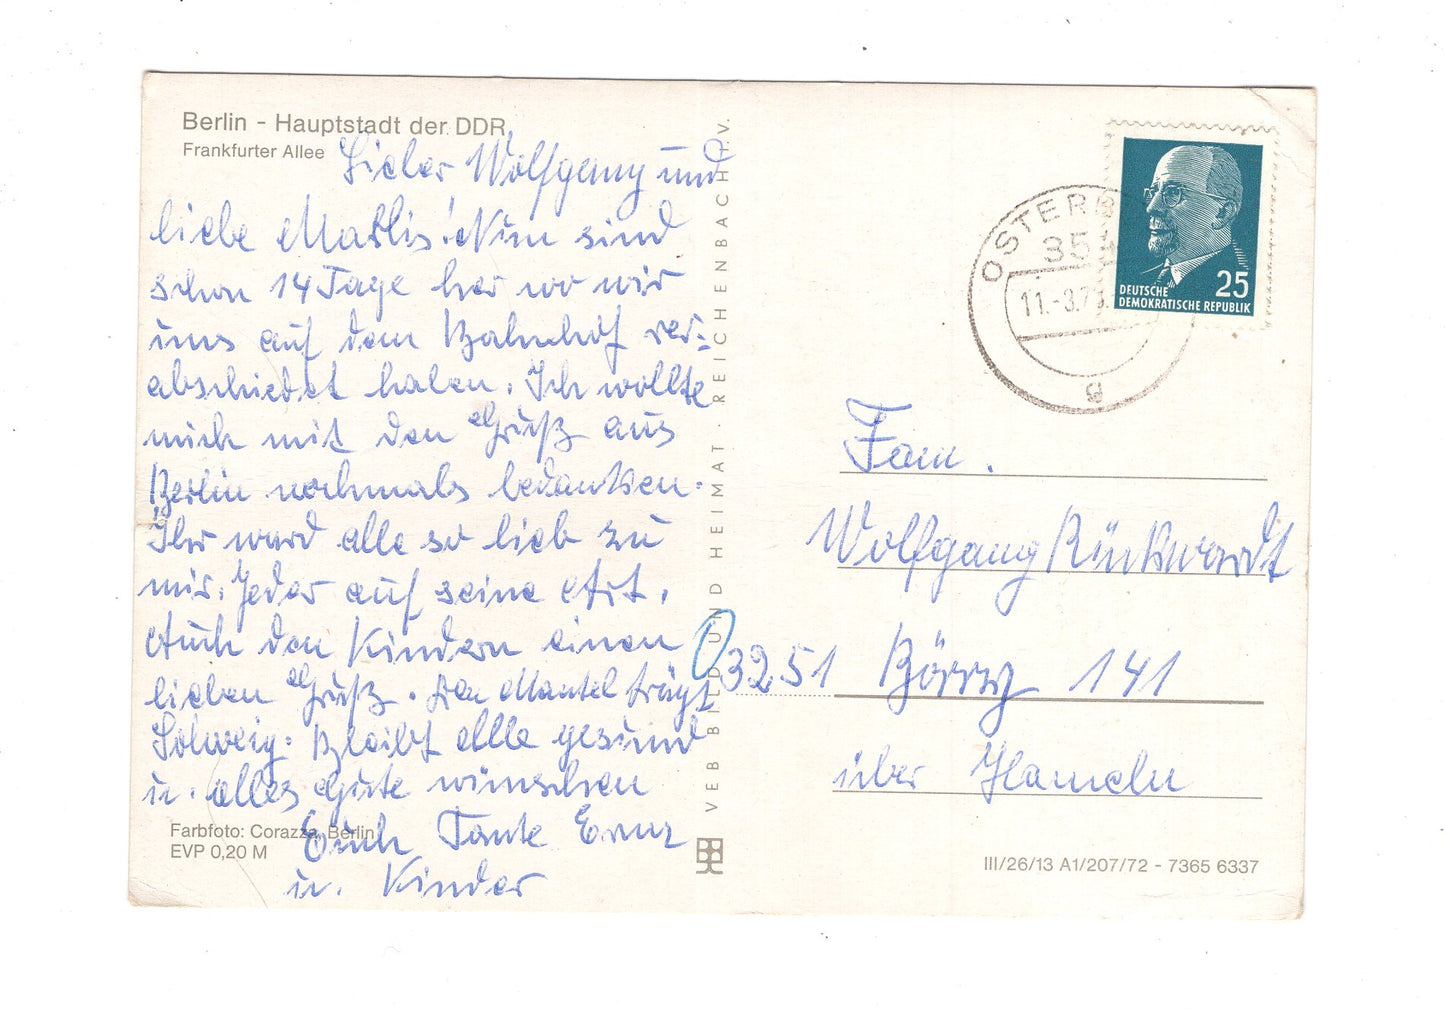 Berlin - Hauptstadt der DDR
Frankfurter Allee
Lieber Wolfgang und
liebe Marlis! Nun sind
schon 14 Tage her wo wir
uns auf dem Bahnhof ver-
abschiedet haben. Ich wollte
mich mit den Gruß aus
Berlin nochmals bedanken.
Ihr ward alle so lieb zu
mir. Jeder auf seine Art.
Auch den Kindern einen
lieben Gruß. Den Mantel trägt
Solweig. Bleibt alle gesund
u. alles Gute wünschen
Euch Tante
u. Kinder
Farbfoto: Corazza, Berlin
EVP 0,20 M
VEB BILD UND HEIMAT · REICHENBACH i.V.
OSTERB
355
11.-3.7
g
25
DEUTSCHE
DEMOKRATISCHE REPUBLIK
Fam.
Wolfgang Rückwardt
3251 Börry 141
über Hameln
III/26/13 A1/207/72 - 7365 6337